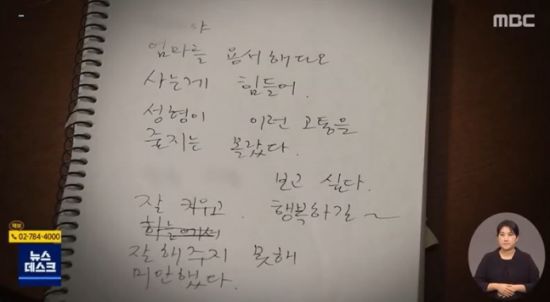 MBC
야
엄마를 용서해다오
사는게 힘들어.
성형이 이런 고통을
줄지는 몰랐다.
보고 싶다.
잘 키우고 행복하길~
하늘에서
잘 해주지 못해
미안했다.
제보
02-784-4000
뉴스
데스크